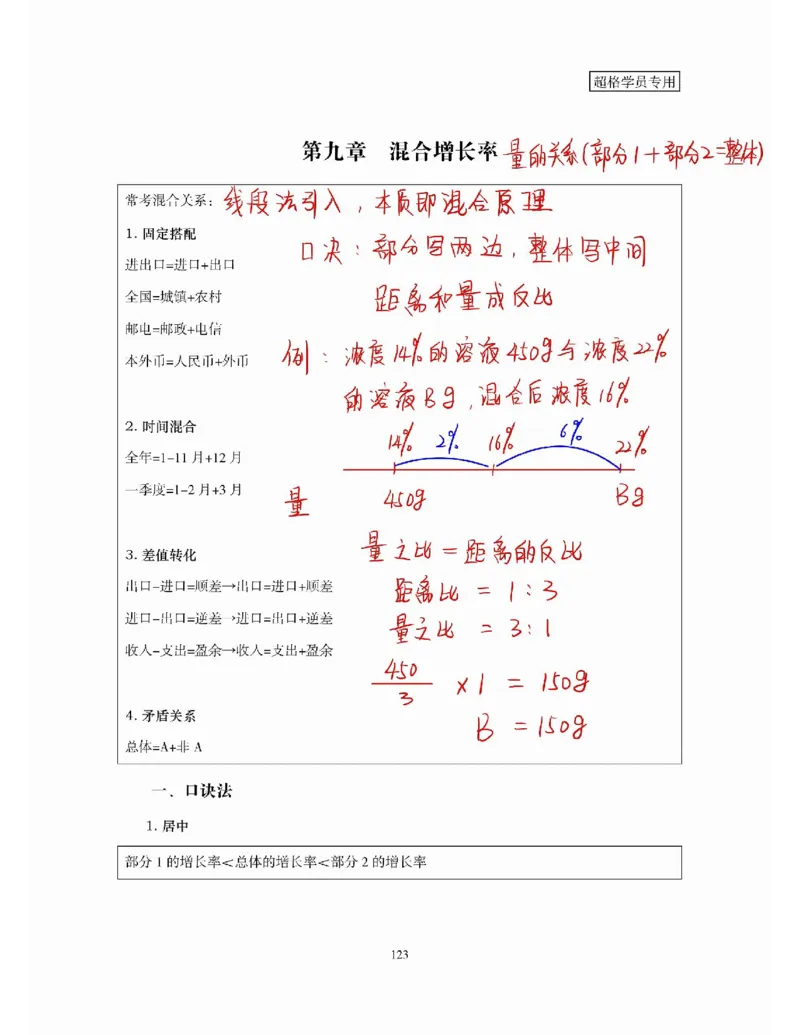 超格学员专用
第九章 混合增长率 量的关系(部分1+部分2=整体)
常考混合关系: 线段法引入,本质即混合原理
1. 固定搭配
口决:部分写两边,整体写中间
进出口=进口+出口
全国=城镇+农村
距离和量成反比
邮电=邮政+电信
本外币=人民币+外币
例:浓度14%的溶液450g与浓度22%
的溶液Bg,混合后浓度16%
2. 时间混合
14% 2% 16% 6% 22%
全年=1-11月+12月
一季度=1-2月+3月
量 450g Bg
3. 差值转化
量之比=距离的反比
出口-进口=顺差→出口=进口+顺差
距离比 = 1:3
进口-出口=逆差→进口=出口+逆差
量之比 = 3:1
收入-支出=盈余→收入=支出+盈余
450/3 ×1 = 150g
4. 矛盾关系
B = 150g
总体=A+非A
一、口诀法
1. 居中
部分1的增长率<总体的增长率<部分2的增长率
123